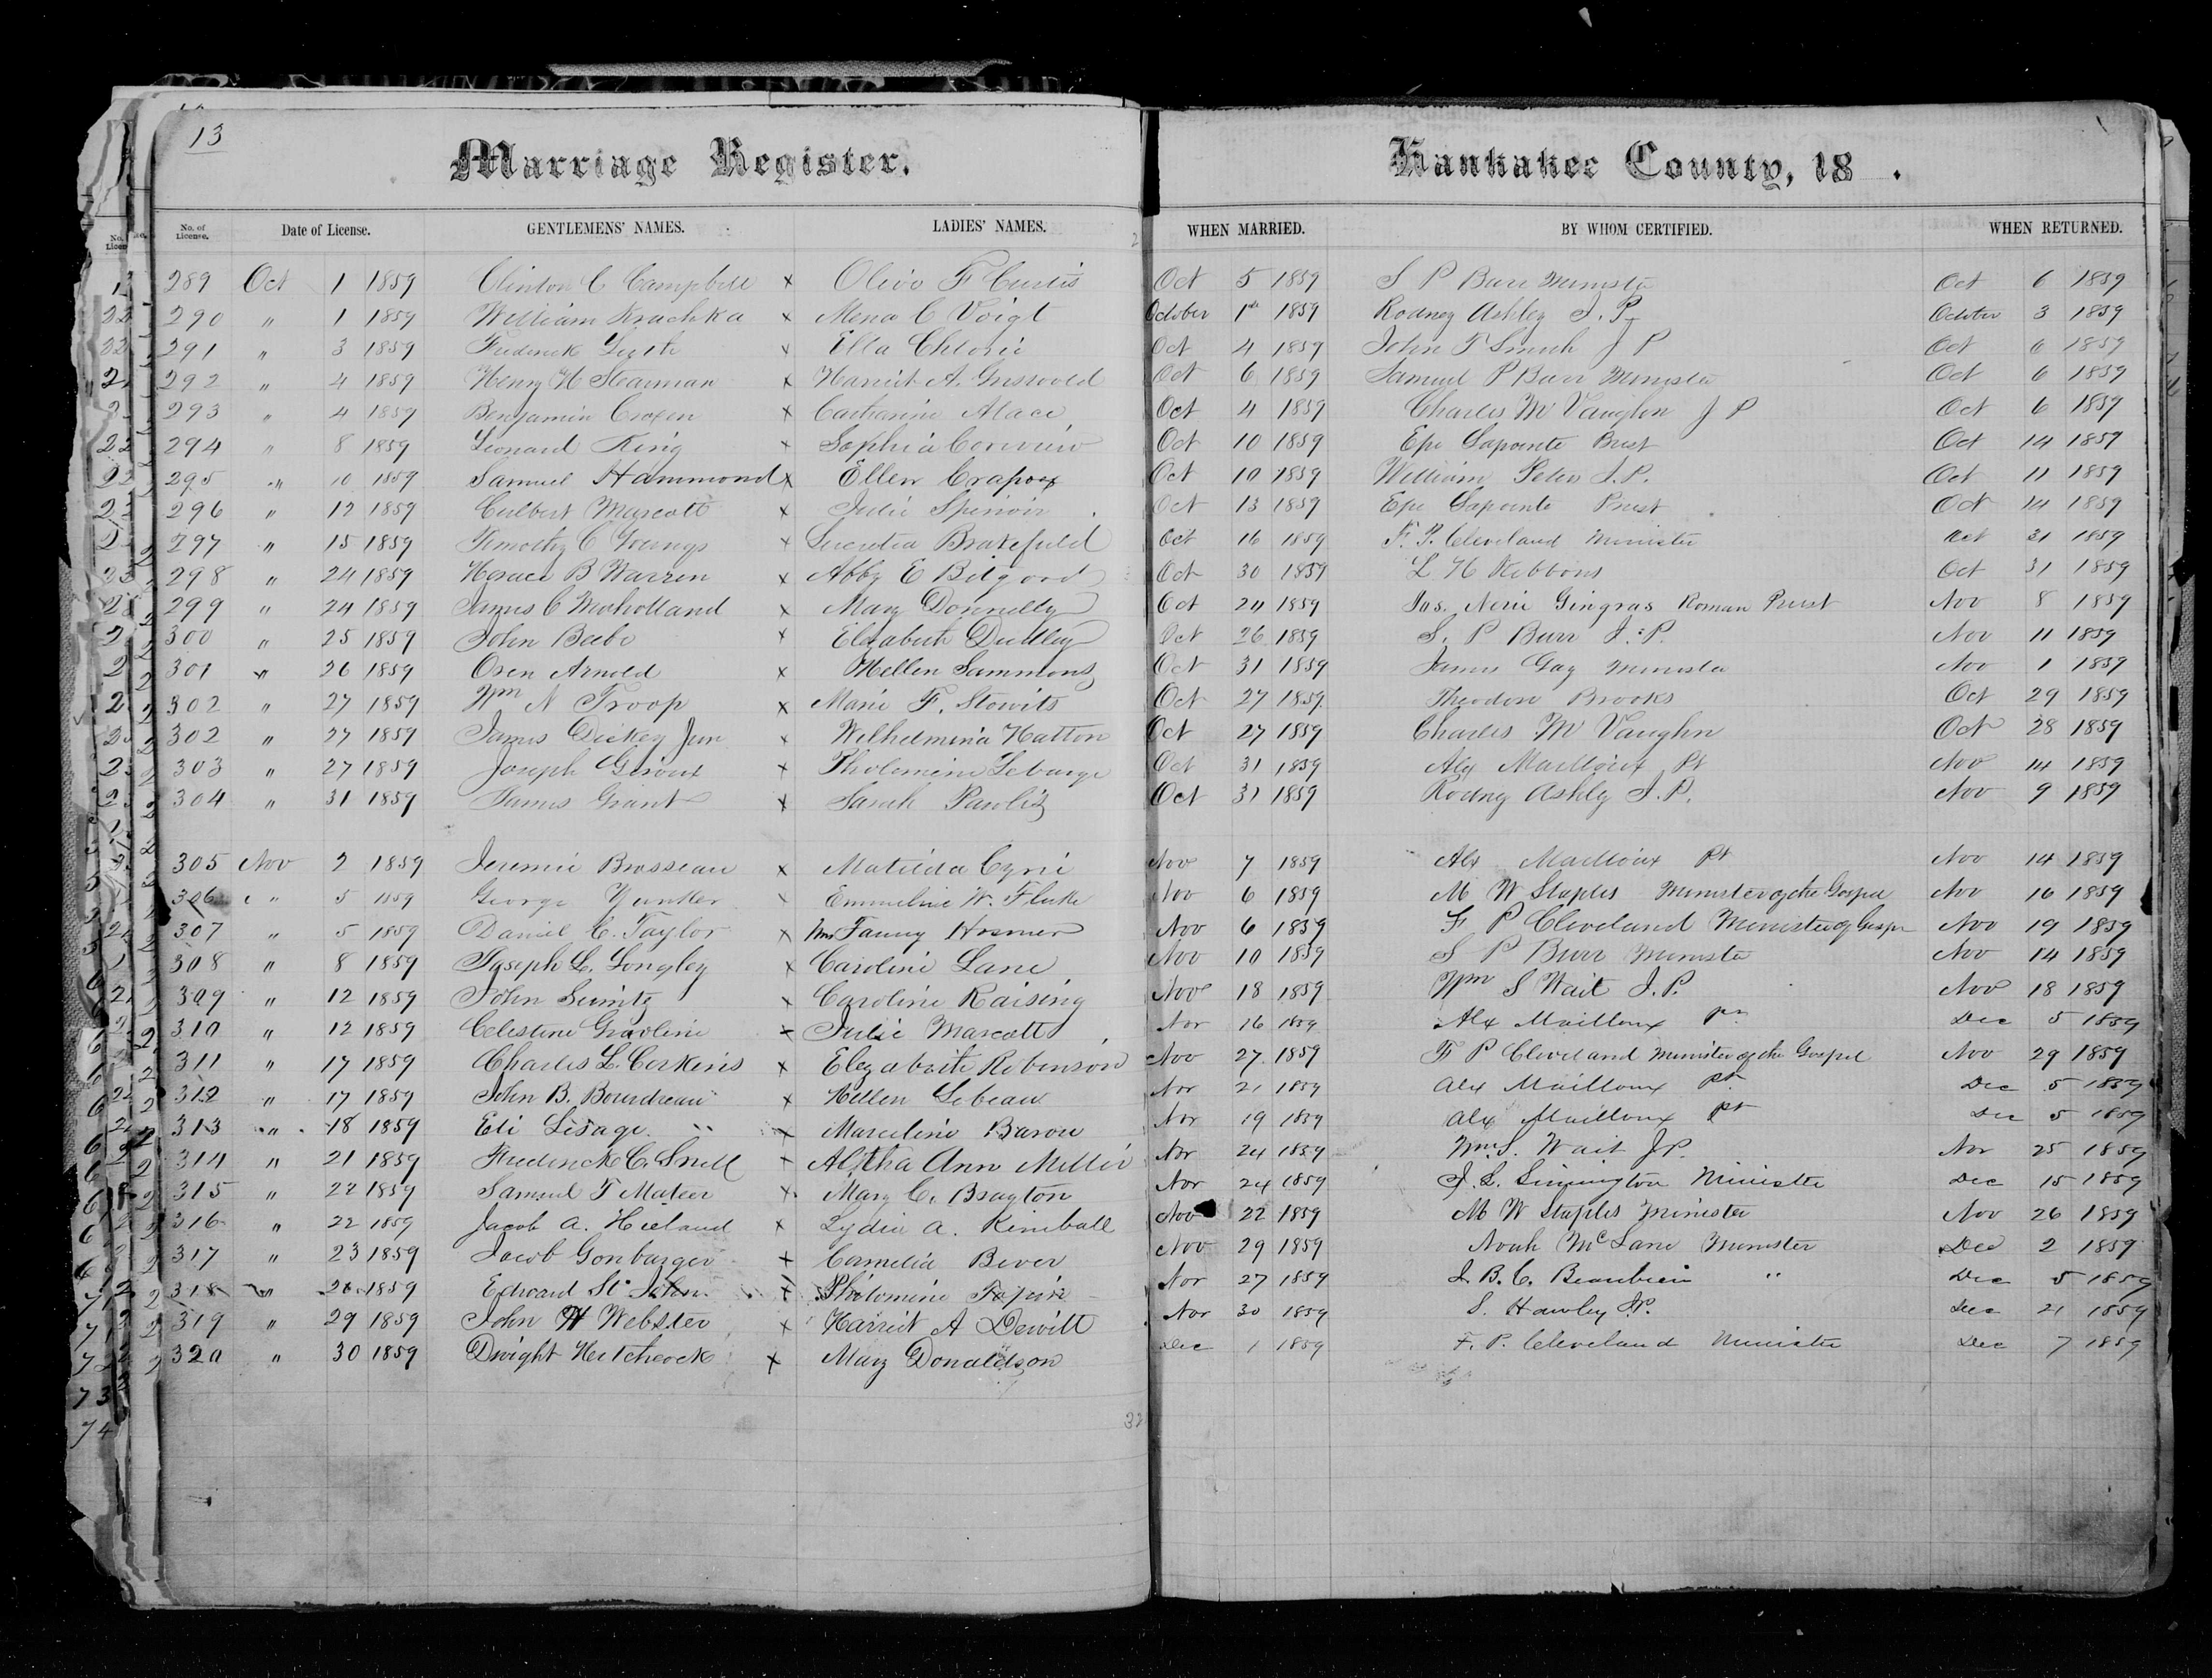 13
Marriage Register. Kankakee County, 18 .
No. of License. Date of License. GENTLEMENS' NAMES. LADIES' NAMES. WHEN MARRIED. BY WHOM CERTIFIED. WHEN RETURNED.
289 Oct 1 1859 Clinton C Campbell x Olive F Curtis Oct 5 1859 S P Burr Minister Oct 6 1859
290 " 1 1859 William Krachka x Mena C Voigt October 1st 1859 Rodney Ashley J. P. October 3 1859
291 " 3 1859 Frederick x Ella Oct 4 1859 John F Smith J P Oct 6 1859
292 " 4 1859 Henry H Stearman x Harriet A. Griswold Oct 6 1859 Samuel P Burr Minister Oct 6 1859
293 " 4 1859 Benjamin Croxen x Catharine Alace Oct 4 1859 Charles M Vaughn J P Oct 6 1859
294 " 8 1859 Leonard King x Sophia Oct 10 1859 Epe Lapointe Priest Oct 14 1859
295 " 10 1859 Samuel Hammond x Ellen Oct 10 1859 William Peters J. P. Oct 11 1859
296 " 12 1859 Culbert Marcott x Julie Oct 13 1859 Epe Lapointe Priest Oct 14 1859
297 " 15 1859 Timothy C Youngs x Lucretia Brakefield Oct 16 1859 F. P. Cleveland Minister Oct 31 1859
298 " 24 1859 Horace B Warren x Abby E Bidgood Oct 30 1859 L H Oct 31 1859
299 " 24 1859 James C Mulholland x Mary Donnelly Oct 24 1859 Jas. Gingras Roman Priest Nov 8 1859
300 " 25 1859 John Beebe x Elizabeth Dudley Oct 26 1859 S. P Burr J. P. Nov 11 1859
301 " 26 1859 Oren Arnold x Hellen Sammons Oct 31 1859 James Gay Minister Nov 1 1859
302 " 27 1859 Wm N Troop x Marie F. Stowits Oct 27 1859 Theodore Brooks Oct 29 1859
302 " 27 1859 James Dickey Jun x Wilhelmina Hatton Oct 27 1859 Charles M Vaughn Oct 28 1859
303 " 27 1859 Joseph Giroux x Tholemine Lebarge Oct 31 1859 Alex Mailloux Pt Nov 14 1859
304 " 31 1859 James Grant x Sarah Oct 31 1859 Rodney Ashley J. P. Nov 9 1859
305 Nov 2 1859 Jeremie Brosseau x Matilda Cyrie Nov 7 1859 Alex Mailloux pt Nov 14 1859
306 " 5 1859 George Yunker x Emmeline W. Fluke Nov 6 1859 M W Staples Minister of the Gospel Nov 16 1859
307 " 5 1859 Daniel C. Taylor x Mrs Fanny Hosmer Nov 6 1859 F P Cleveland Minister of Gospe Nov 19 1859
308 " 8 1859 Joseph L. Longley x Caroline Lane Nov 10 1859 S P Burr Minister Nov 14 1859
309 " 12 1859 John x Caroline Raising Nov 18 1859 Wm S Wait J. P. Nov 18 1859
310 " 12 1859 Celestine Gravline x Julie Marcott Nov 16 1859 Alex Mailloux pr Dec 5 1859
311 " 17 1859 Charles L. Corkins x Elezabeth Robinson Nov 27 1859 F P Cleveland Minister of the Gospel Nov 29 1859
312 " 17 1859 John B. Bourdreau x Hellen Lebeau Nov 21 1859 Alex Mailloux pr Dec 5 1859
313 " 18 1859 Eli Lesage x Marceline Baron Nov 19 1859 Alex Mailloux pr Dec 5 1859
314 " 21 1859 Frederick C. Snell x Altha Ann Miller Nov 24 1859 Wm. S. Wait J P. Nov 25 1859
315 " 22 1859 Samuel T Mateer x Mary C. Brayton Nov 24 1859 Minister Dec 15 1859
316 " 22 1859 Jacob A. Hieland x Lydia A. Kimball Nov 22 1859 M W Staples Minister Nov 26 1859
317 " 23 1859 Jacob Gonbarger x Camelia Bever Nov 29 1859 Noah McLane Minister Dec 2 1859
318 " 26 1859 Edward St. John x Philomine Nov 27 1859 J. B. C. Beaubien " Dec 5 1859
319 " 29 1859 John H Webster x Harriet A Dewitt Nov 30 1859 S. Hawley J P. Dec 21 1859
320 " 30 1859 Dwight Hitchcock x Mary Donaldson Dec 1 1859 F. P. Cleveland Minister Dec 7 1859